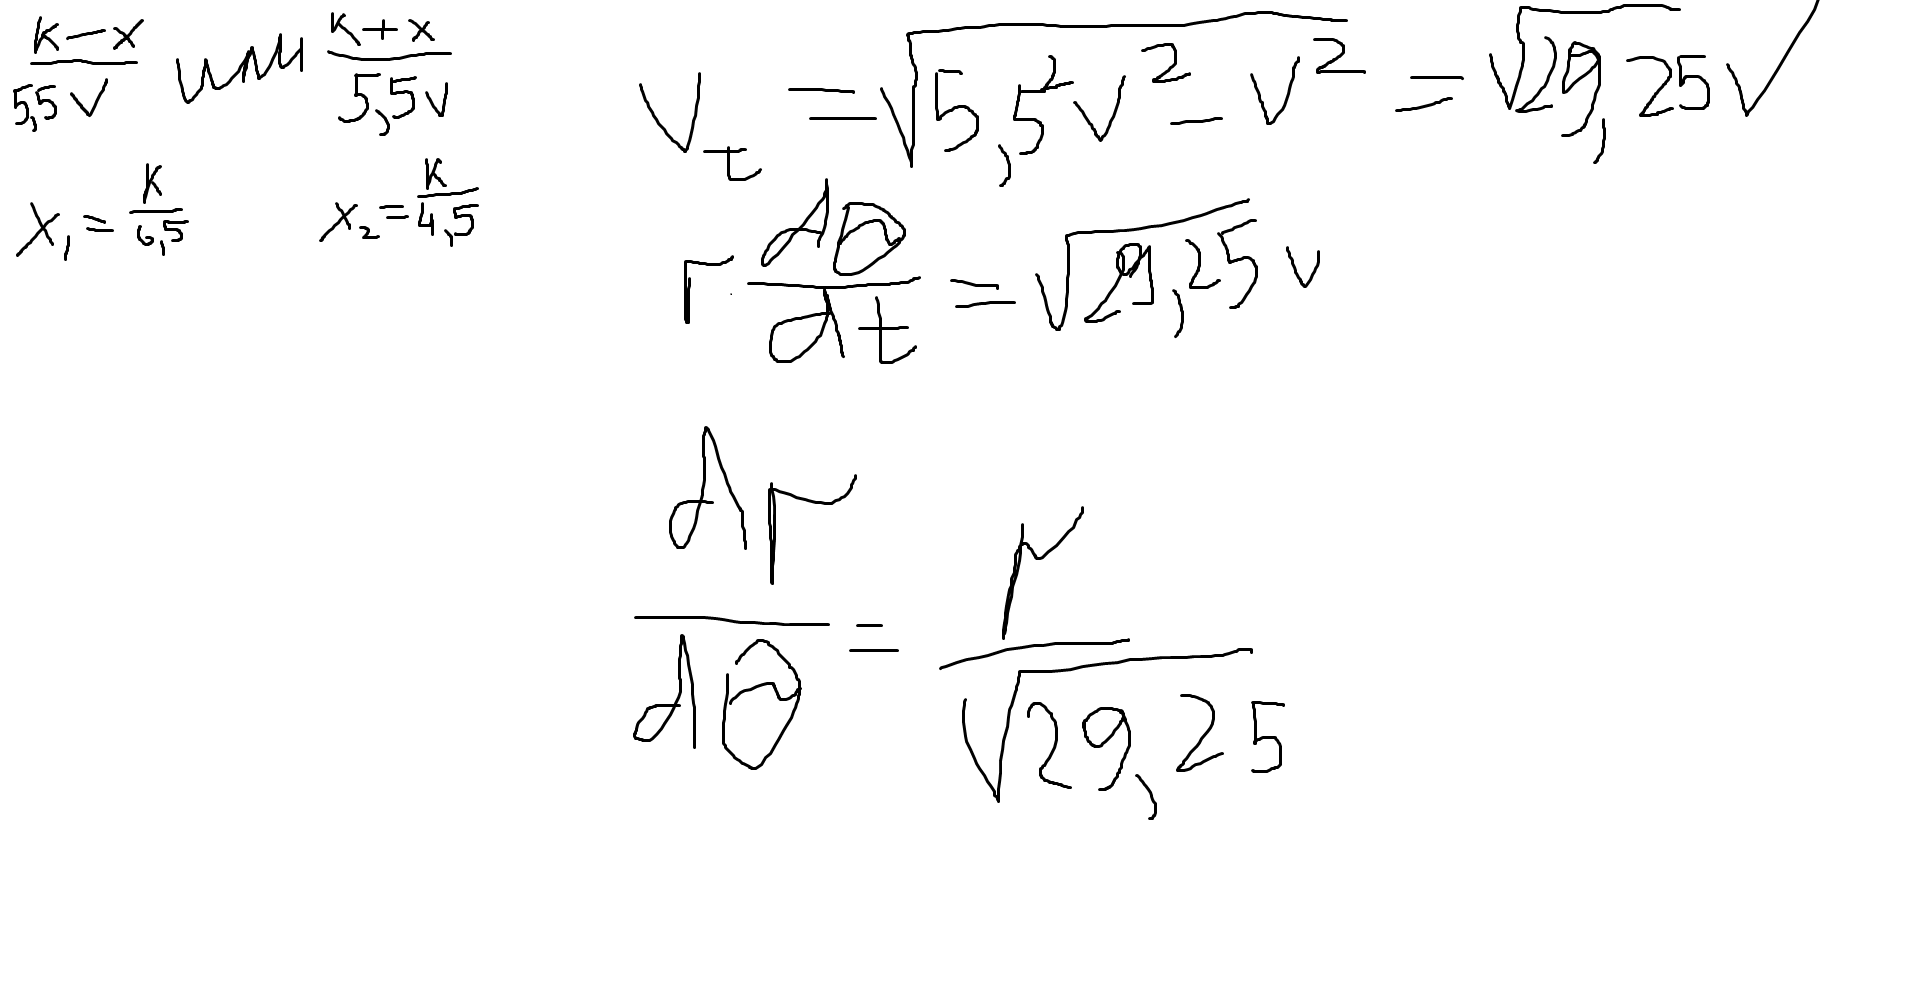 (k-x)/(5,5v) или (k+x)/(5,5v)
x₁ = k/6,5    x₂ = k/4,5
v_t = √(5,5²v² - v²) = √29,25 v
r dθ/dt = √29,25 v
dr/dθ = r/√29,25